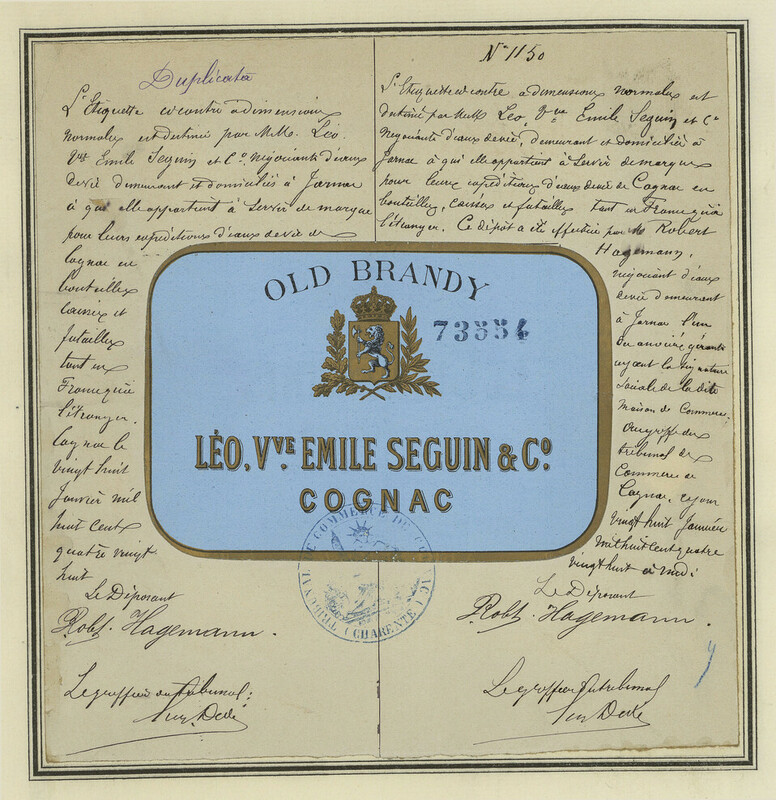 Duplicata
L'Etiquette ci contre a dimensions
normales est destinée par M.M. Léo.
Vve Emile Seguin et Co. négociants d'eaux
de vie demeurant et domiciliés à Jarnac
à qui elle appartient à servir de marque
pour leurs expéditions d'eaux de vie de
Cognac en
bouteilles
caisses et
futailles
tant en
France qu'à
l'étranger.
Cognac le
vingt huit
Janvier mil
huit cent
quatre vingt
huit
Le Déposant
Robt. Hagemann.
Le greffier du tribunal:
No 1150
L'Etiquette ci contre a dimensions normales est
destinée par M.M. Léo, Vve Emile Seguin et Co
négociants d'eaux de vie, demeurant et domiciliés à
Jarnac à qui elle appartient à servir de marque
pour leurs expéditions d'eaux de vie de Cognac en
bouteilles, caisses et futailles tant en France qu'à
l'étranger. Ce dépôt a été effectué par M Robert
Hagemann,
négociant d'eaux
de vie demeurant
à Jarnac l'un
des gérants
ayant la signature
sociale de la dite
maison de Commerce.
Au greffe du
tribunal de
Commerce de
Cognac, ce jour
vingt huit Janvier
mil huit cent quatre
vingt huit à midi
Le Déposant
Robt. Hagemann.
Le greffier du tribunal
OLD BRANDY
73554
LÉO, VVE EMILE SEGUIN & CO.
COGNAC
TRIBUNAL DE COMMERCE DE COGNAC
(CHARENTE)